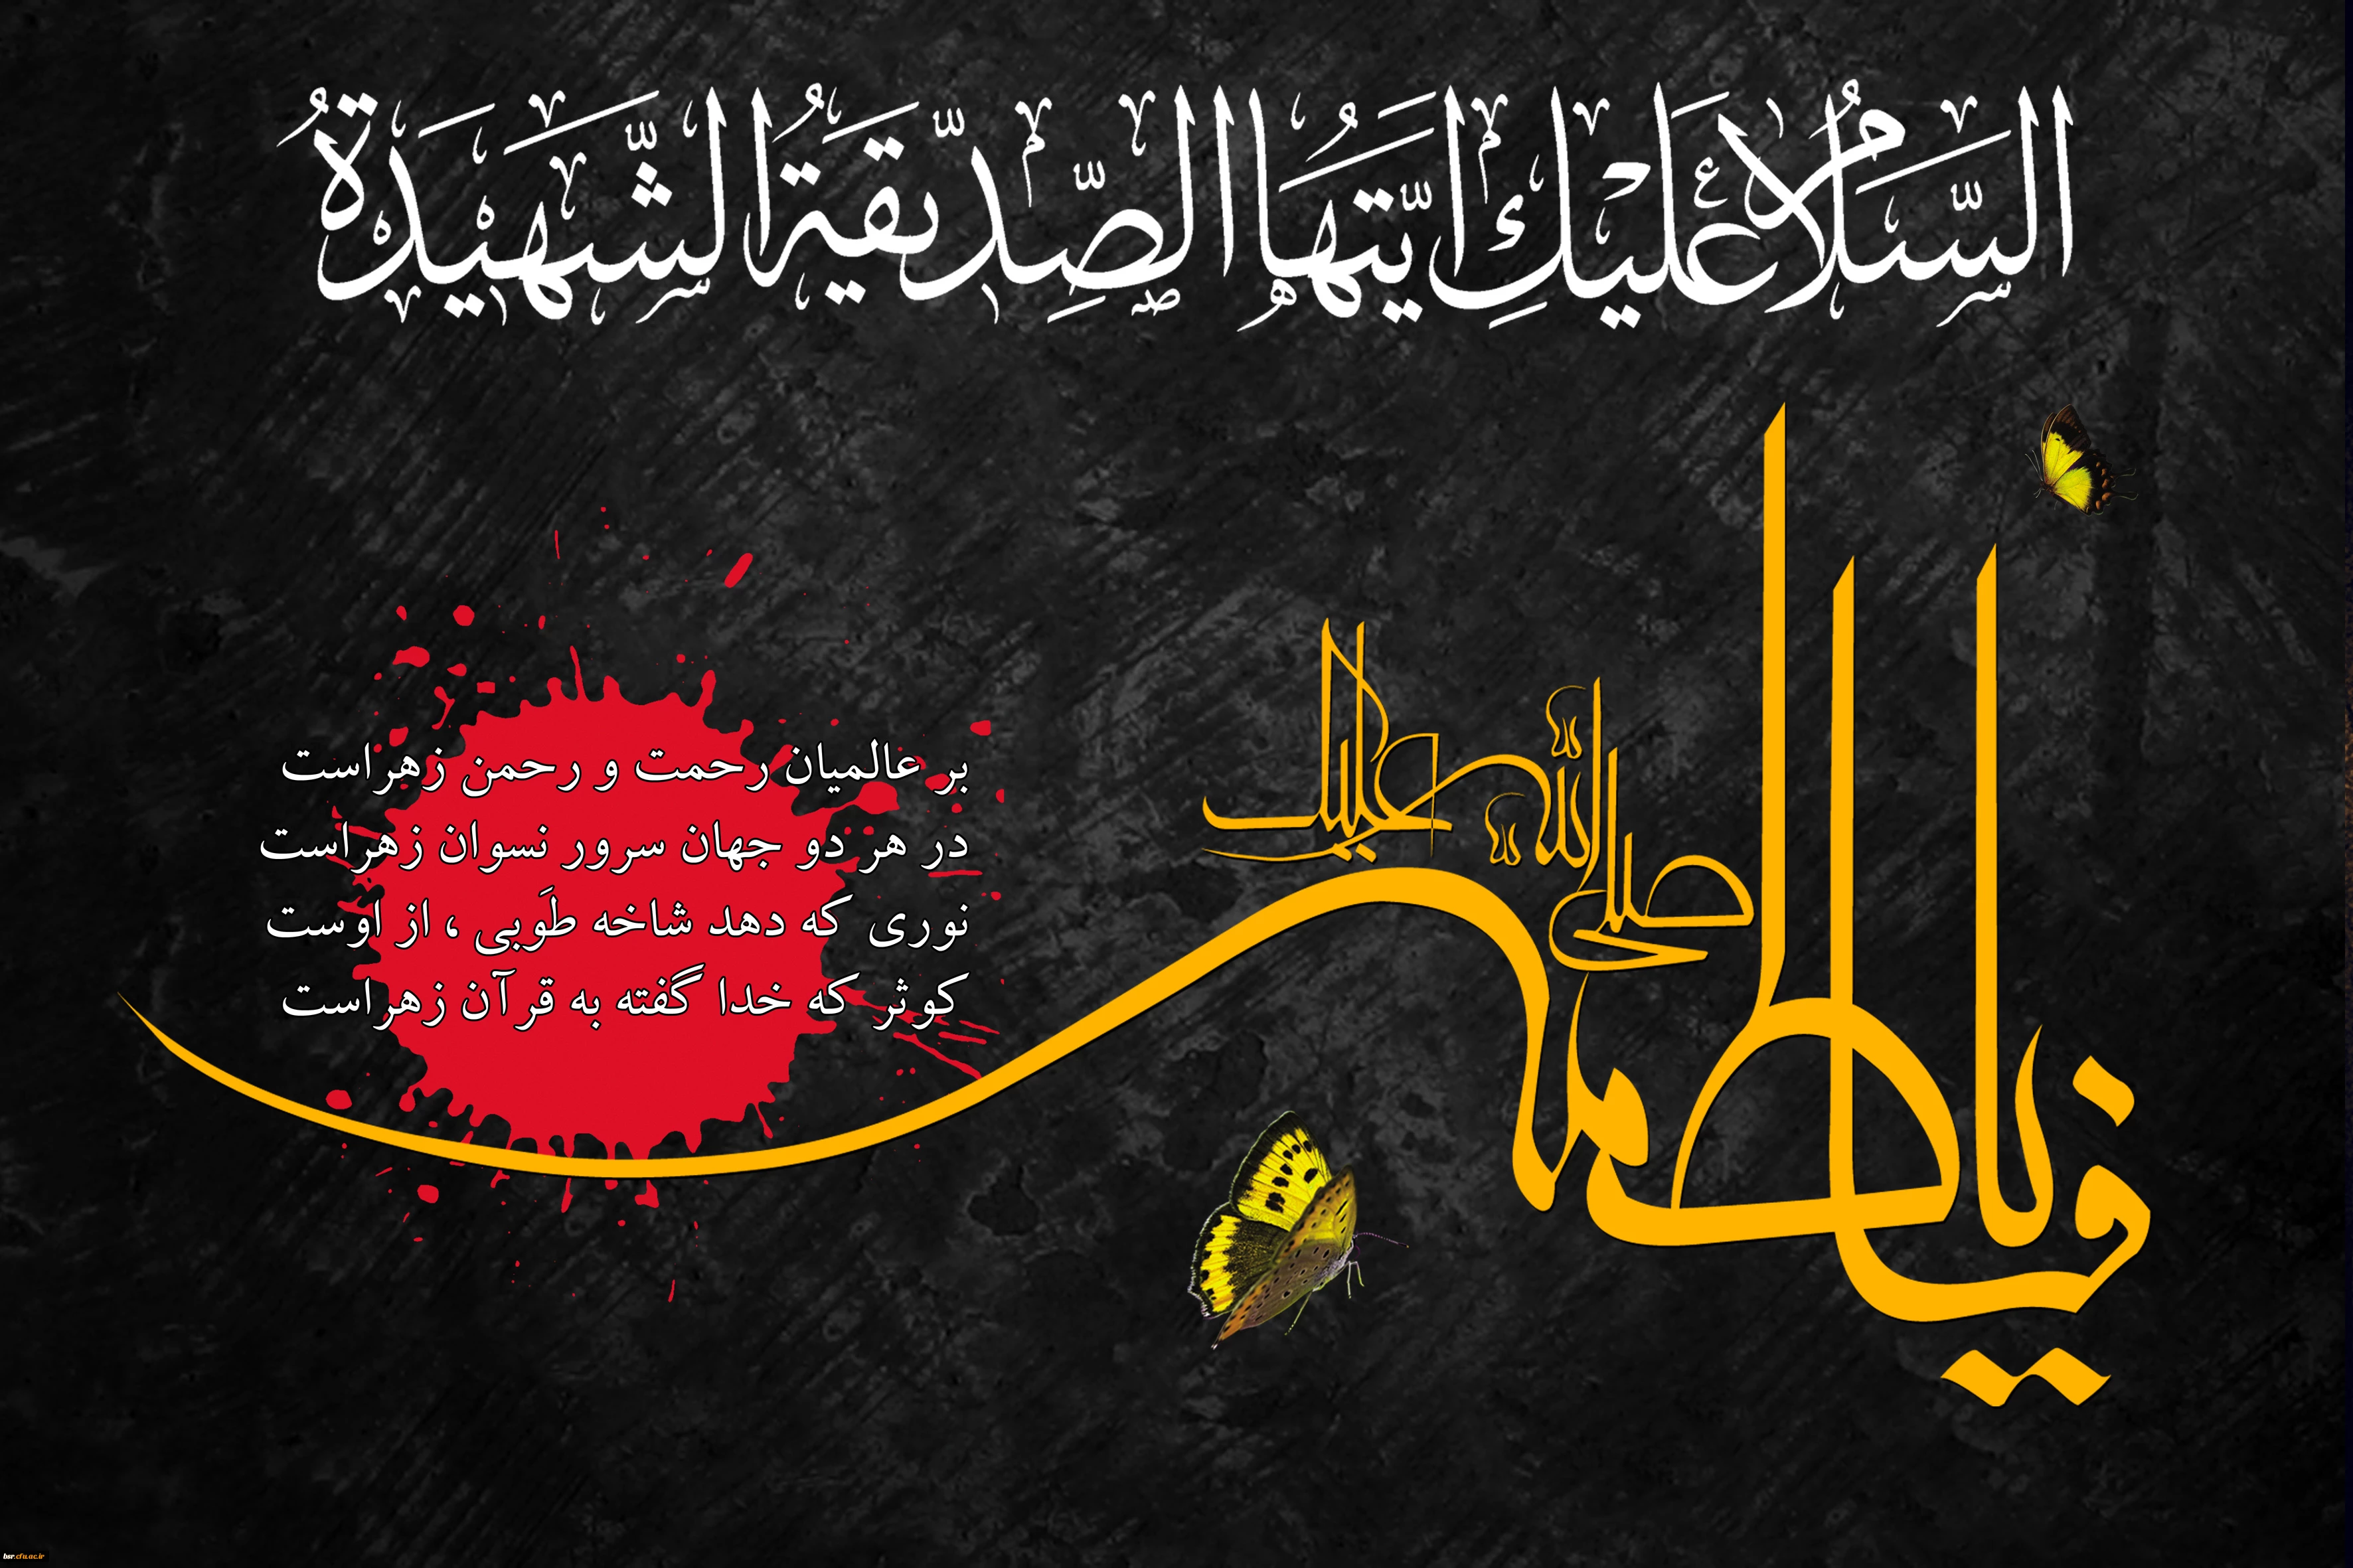 السَّلَامُ عَلَيْكِ ايَّتُهَا الصِّدّيقَةُ الشَّهيْدَةُ
صلی الله علیک
یا فاطمة
بر عالمیان رحمت و رحمن زهراست
در هر دو جهان سرور نسوان زهراست
نوری که دهد شاخه طَوبی ، از اوست
کوثر که خدا گفته به قرآن زهراست
bsr.cfu.ac.ir